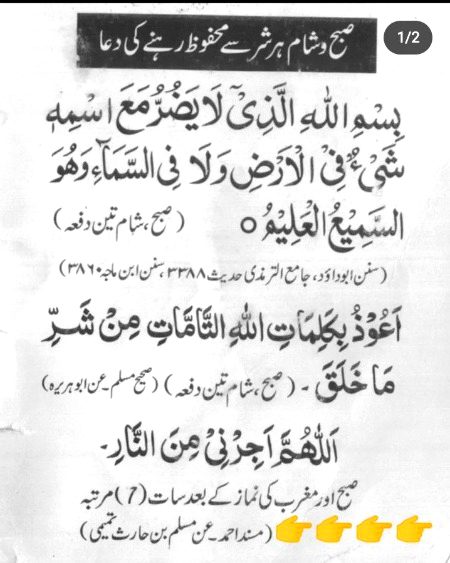 1/2
صبح و شام ہر شر سے محفوظ رہنے کی دعا
بِسْمِ اللهِ الَّذِیْ لَا یَضُرُّ مَعَ اسْمِهٖ
شَیْءٌ فِی الْاَرْضِ وَلَا فِی السَّمَآءِ وَهُوَ
السَّمِیْعُ الْعَلِیْمُ ○ (صبح، شام تین دفعہ)
(سنن ابوداؤد، جامع الترمذی حدیث ۳۳۸۸، سنن ابن ماجہ ۳۸۶۰)
اَعُوْذُ بِكَلِمَاتِ اللهِ التَّامَّاتِ مِنْ شَرِّ
مَا خَلَقَ ۔ (صبح، شام تین دفعہ) (صحیح مسلم ۔ عن ابو ہریرہ)
اَللّٰهُمَّ اَجِرْنِیْ مِنَ النَّارِ ۔
صبح اور مغرب کی نماز کے بعد سات (7) مرتبہ
(مسند احمد ۔ عن مسلم بن حارث تمیمی)